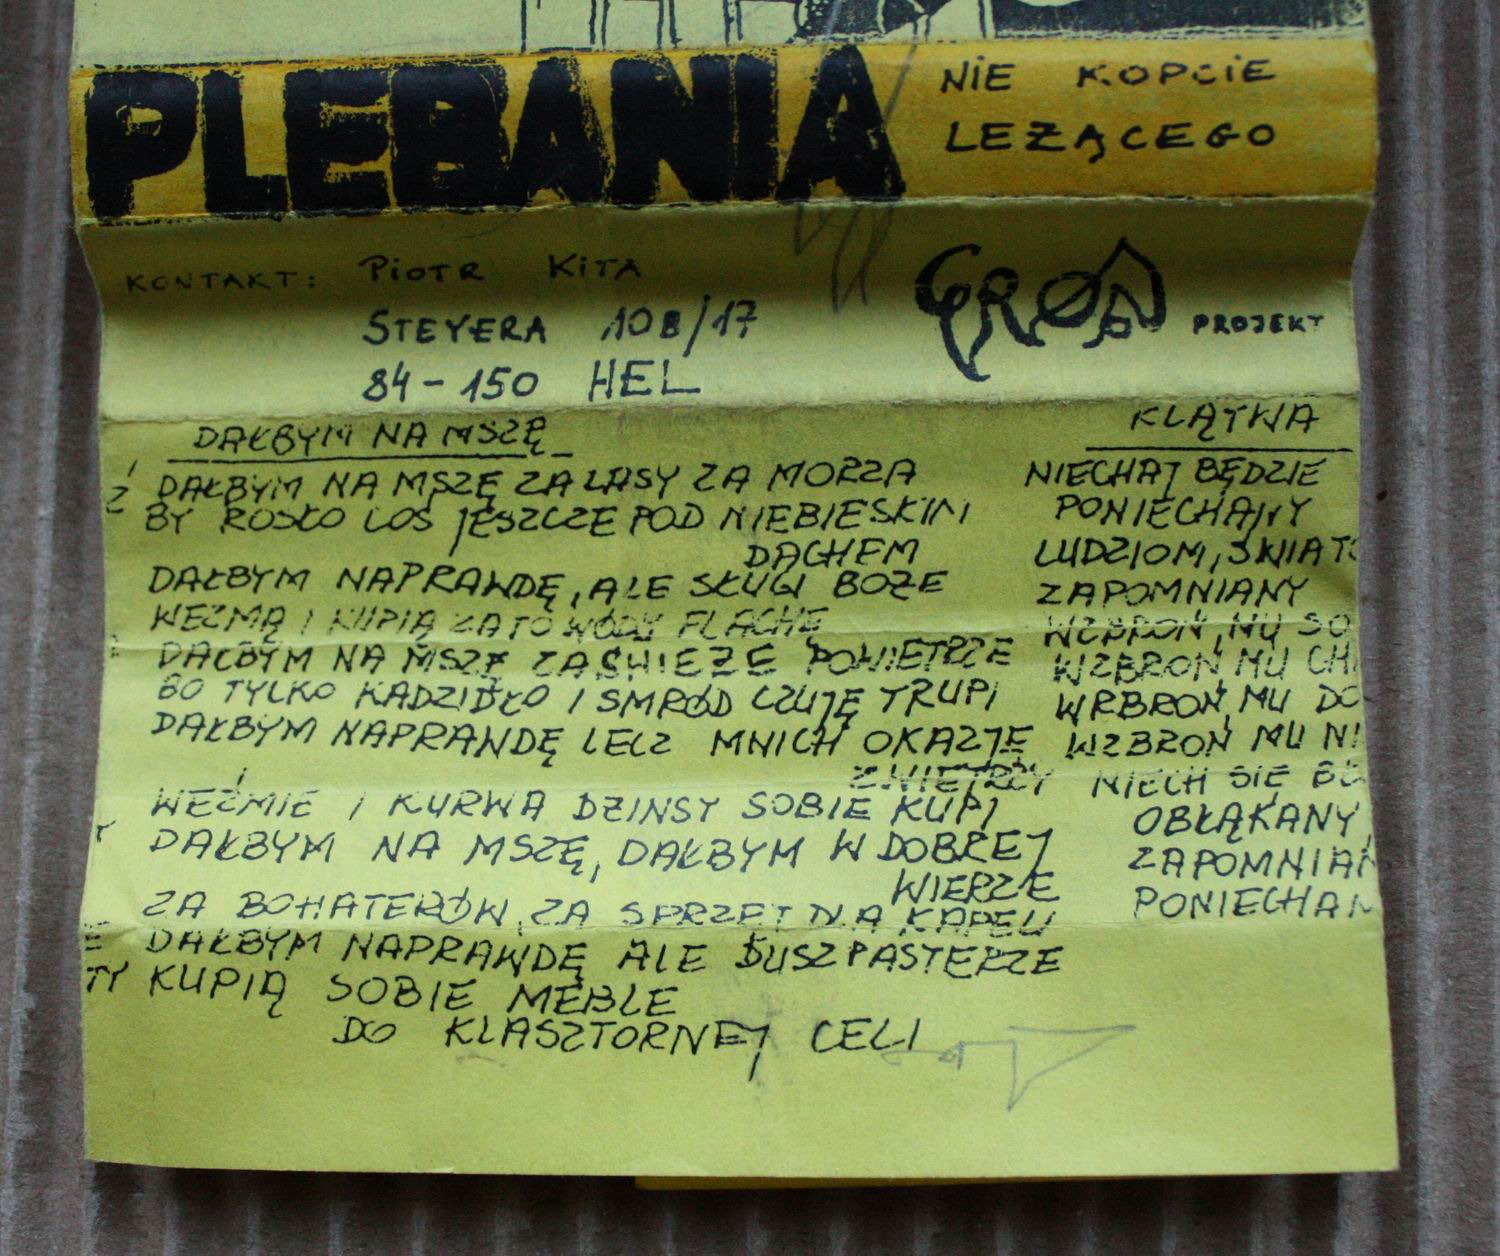 PLEBANIA
NIE KOPCIE
LEŻĄCEGO
KONTAKT: PIOTR KITA
STEYERA 10B/17
84-150 HEL
PROJEKT
DAŁBYM NA MSZĘ
DAŁBYM NA MSZĘ ZA LASY ZA MORZA
BY ROSŁO COŚ JESZCZE POD NIEBIESKIM
DACHEM
DAŁBYM NAPRAWDĘ, ALE SŁUGI BOŻE
WEZMĄ I KUPIĄ ZA TO WÓDY FLACHĘ
DAŁBYM NA MSZĘ ZA ŚWIEŻE POWIETRZE
BO TYLKO KADZIDŁO I SMRÓD CZUJĘ TRUPI
DAŁBYM NAPRAWDĘ LECZ MNICH OKAZJĘ
ZWIETRZY
WEŹMIE I KURWA DŻINSY SOBIE KUPI
DAŁBYM NA MSZĘ, DAŁBYM W DOBREJ
WIERZE
ZA BOHATERÓW, ZA SPRZĘT DLA KAPELI
DAŁBYM NAPRAWDĘ ALE DUSZPASTERZE
KUPIĄ SOBIE MEBLE
DO KLASZTORNEJ CELI
KLĄTWA
NIECHAJ BĘDZIE
PONIECHANY
LUDZIOM, ŚWIATU
ZAPOMNIANY
WZBROŃ MU SO
WZBROŃ MU CH
WRBROŃ MU DO
WZBROŃ MU NI
NIECH SIĘ BŁ
OBŁĄKANY,
ZAPOMNIAN
PONIECHAN
Z
TY